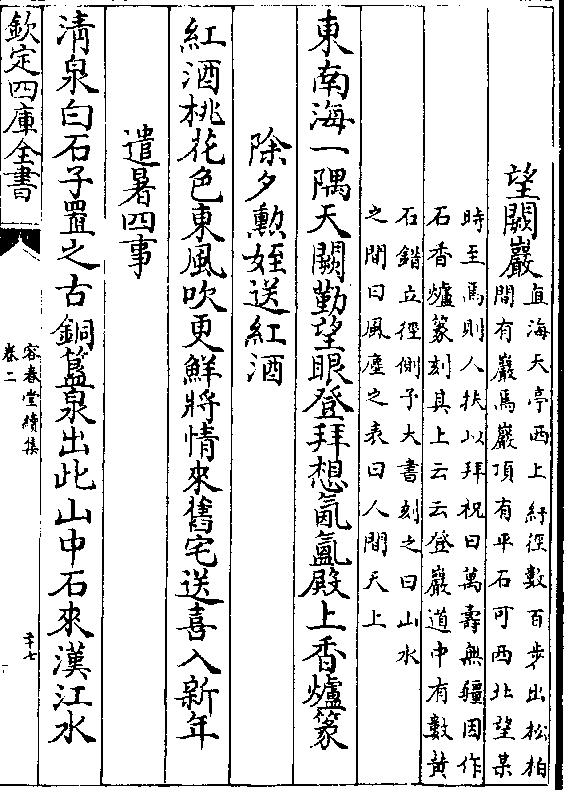 望闕巖
直海天亭西上紆徑數百步出松柏
間有巖焉巖頂有平石可西北望某
時至焉則人扶以拜祝曰萬壽無疆因作
石香爐篆刻其上云云登巖道中有數黄
石錯立徑側予大書刻之曰山水
之間曰風塵之表曰人間天上
東南海一隅天闕勤望眼登拜想氤氳殿上香爐篆
除夕勲姪送紅酒
紅酒桃花色東風吹更鮮將情來舊宅送喜入新年
遣暑四事
清泉白石子置之古銅簋泉出此山中石來漢江水
欽定四庫全書
容春堂續集
卷二